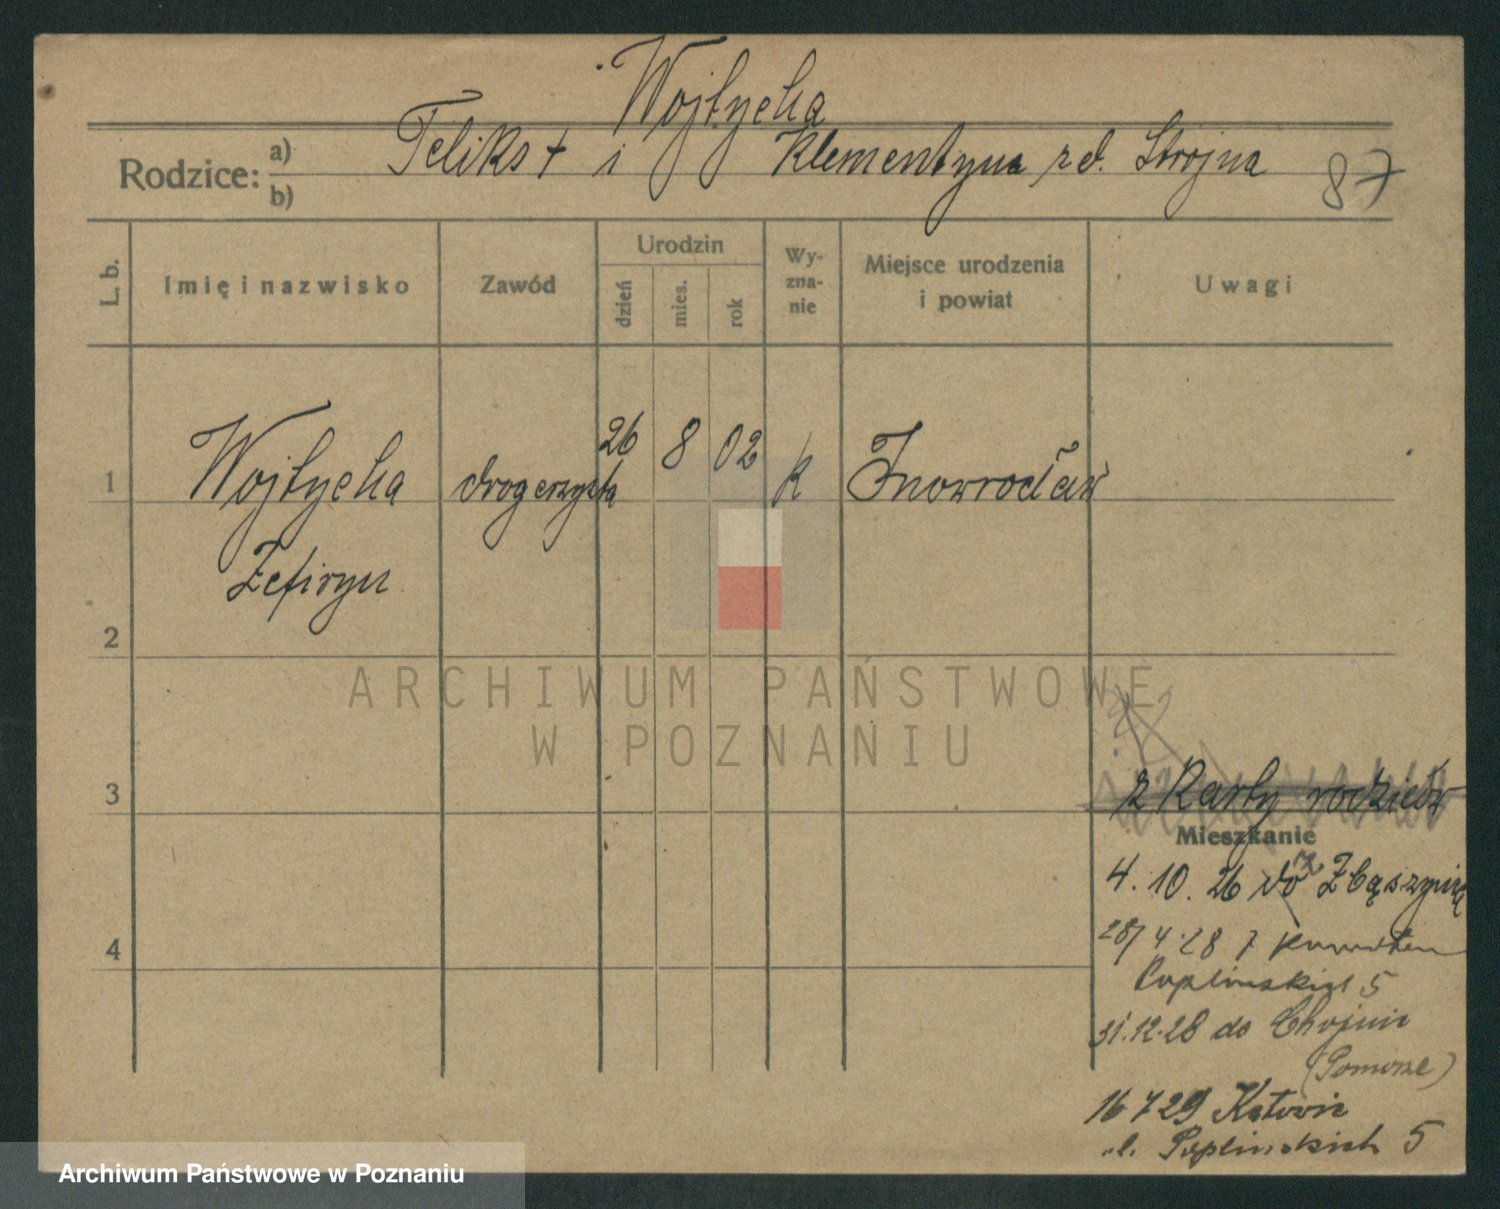 Wojtycha
Rodzice: a) b) Feliks † i Klementyna zd. Strojna 87
L. b.
Imię i nazwisko
Zawód
Urodzin
dzień
mies.
rok
Wy-
zna-
nie
Miejsce urodzenia
i powiat
Uwagi
1 Wojtycha drogerzysta 26 8 02 k Inowrocław
Zefiryn
2
ARCHIWUM PAŃSTWOWE
W POZNANIU
3
z Karty rodziców
Mieszkanie
4. 10. 26 do Zbąszynia
4
28/4.28 z
Poplinskich 5
31.12.28 do Chojnic
(Pomorze)
16 7 29 Katowic
ul. Poplinskich 5
Archiwum Państwowe w Poznaniu